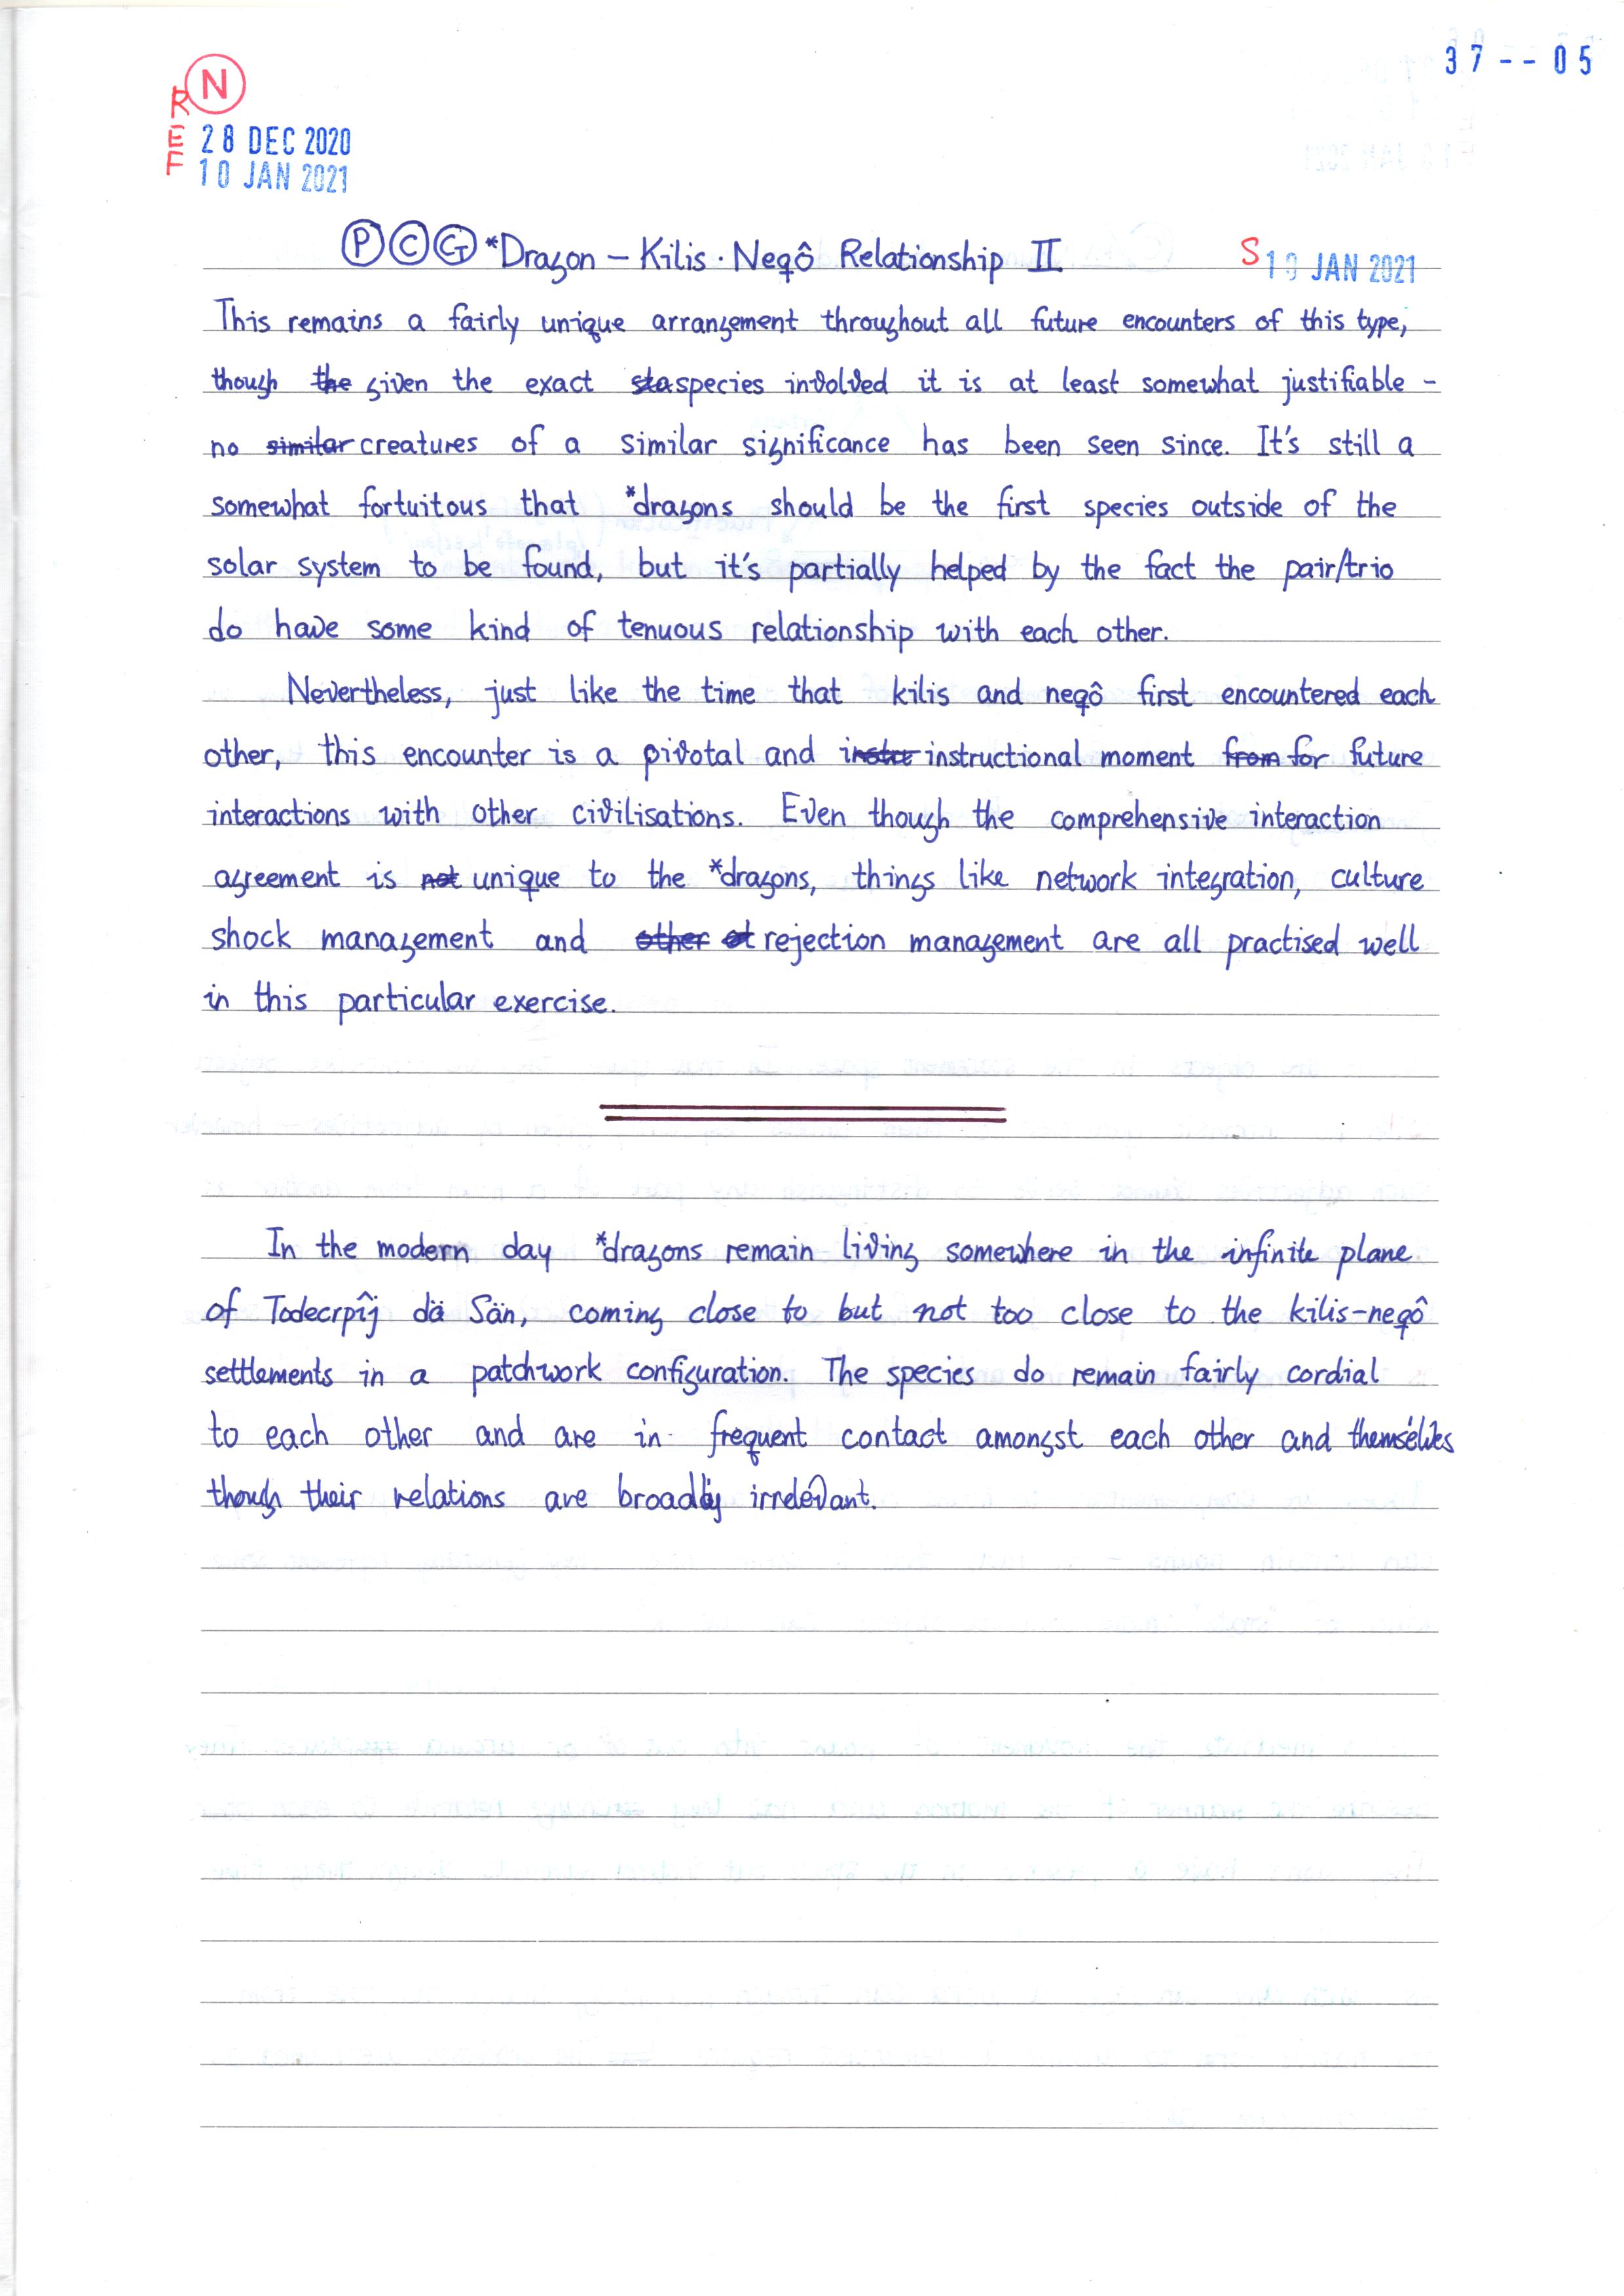 37--05
N
REF
28 DEC 2020
10 JAN 2021
P C G *Dragon – Kilis · Neqô Relationship II
S 10 JAN 2021
This remains a fairly unique arrangement throughout all future encounters of this type,
though the given the exact sta species involved it is at least somewhat justifiable –
no similar creatures of a similar significance has been seen since. It's still a
somewhat fortuitous that *dragons should be the first species outside of the
solar system to be found, but it's partially helped by the fact the pair/trio
do have some kind of tenuous relationship with each other.
Nevertheless, just like the time that kilis and neqô first encountered each
other, this encounter is a pivotal and instru instructional moment from for future
interactions with other civilisations. Even though the comprehensive interaction
agreement is not unique to the *dragons, things like network integration, culture
shock management and other ot rejection management are all practised well
in this particular exercise.
In the modern day *dragons remain living somewhere in the infinite plane
of Todecrpîj dä Sän, coming close to but not too close to the kilis-neqô
settlements in a patchwork configuration. The species do remain fairly cordial
to each other and are in frequent contact amongst each other and themselves
though their relations are broadly irrelevant.